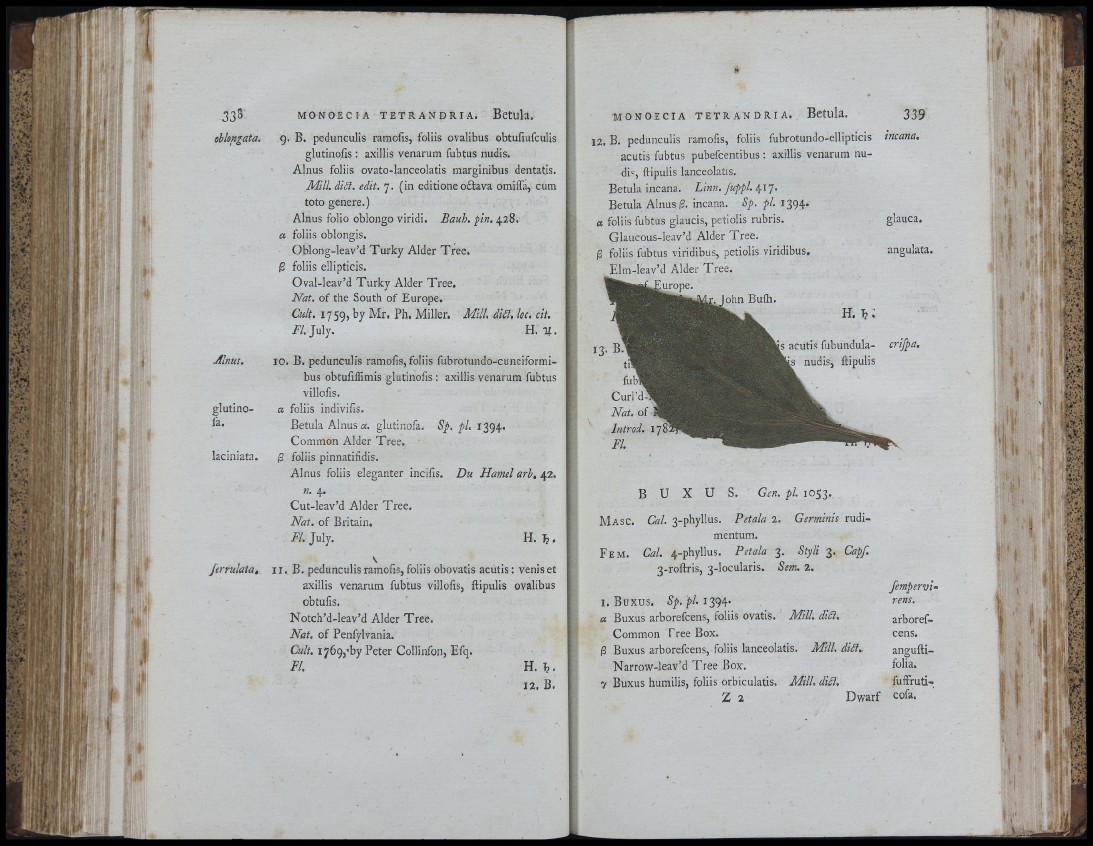 338 MONOECIA TETRANDRIA. Betula.
oblongata. 9. B. pedunculis ramoſis, foliis ovalibus obtuſiuſculis
glutinoſis : axillis venarum ſubtus nudis.
Alnus foliis ovato-lanceolatis marginibus dentatis.
Mill. dict. edit. 7. (in editione octava omiſſa, cum
toto genere.)
Alnus folio oblongo viridi. Bauh. pin. 428.
α foliis oblongis.
Oblong-leav'd Turky Alder Tree.
β foliis ellipticis.
Oval-leav'd Turky Alder Tree.
Nat. of the South of Europe.
Cult. 1759, by Mr. Ph. Miller. Mill. dict. loc. cit.
Fl. July. H. ♃.
Alnus. 10. B. pedunculis ramoſis, foliis ſubrotundo-cuneiformi-
bus obtuſiſſimis glutinoſis : axillis venarum ſubtus
villoſis.
glutino- α foliis indiviſis.
ſa. Betula Alnus α. glutinoſa. Sp. pl. 1394.
Common Alder Tree.
laciniata. β foliis pinnatifidis.
Alnus foliis eleganter inciſis. Du Hamel arb. 42.
n. 4.
Cut-leav'd Alder Tree.
Nat. of Britain.
Fl. July. H. ♄.
ſerrulata. 11. B. pedunculis ramoſis, foliis obovatis acutis : venis et
axillis venarum ſubtus villoſis, ſtipulis ovalibus
obtuſis.
Notch'd-leav'd Alder Tree.
Nat. of Penſylvania.
Cult. 1769, by Peter Collinſon, Eſq.
Fl. H. ♄.
12. B.
MONOECIA TETRANDRIA. Betula. 339
12. B. pedunculis ramoſis, foliis ſubrotundo-ellipticis incana.
acutis ſubtus pubeſcentibus : axillis venarum nu-
dis, ſtipulis lanceolatis.
Betula incana. Linn. ſuppl. 417.
Betula Alnus β. incana. Sp. pl. 1394.
α foliis ſubtus glaucis, petiolis rubris. glauca.
Glaucous-leav'd Alder Tree.
β foliis ſubtus viridibus, petiolis viridibus. angulata.
Elm-leav'd Alder Tree.
of Europe.
Mr. John Buſh.
H. ♄.
13. B. acutis ſubundula- criſpa.
nudis, ſtipulis
Curl'd-
Nat. of
Introd. 1782,
Fl.
BUXUS. Gen. pl. 1053.
MASC. Cal. 3-phyllus. Petala 2. Germinis rudi-
mentum.
FEM. Cal. 4-phyllus. Petala 3. Styli 3. Capſ.
3-roſtris, 3-locularis. Sem. 2.
ſempervi-
1. BUXUS. Sp. pl. 1394. rens.
α Buxus arboreſcens, foliis ovatis. Mill. dict. arboreſ-
Common Tree Box. cens.
β Buxus arboreſcens, foliis lanceolatis. Mill. dict. anguſti-
Narrow-leav'd Tree Box. folia.
γ Buxus humilis, foliis orbiculatis. Mill. dict. ſuffruti-
Z 2 Dwarf coſa.